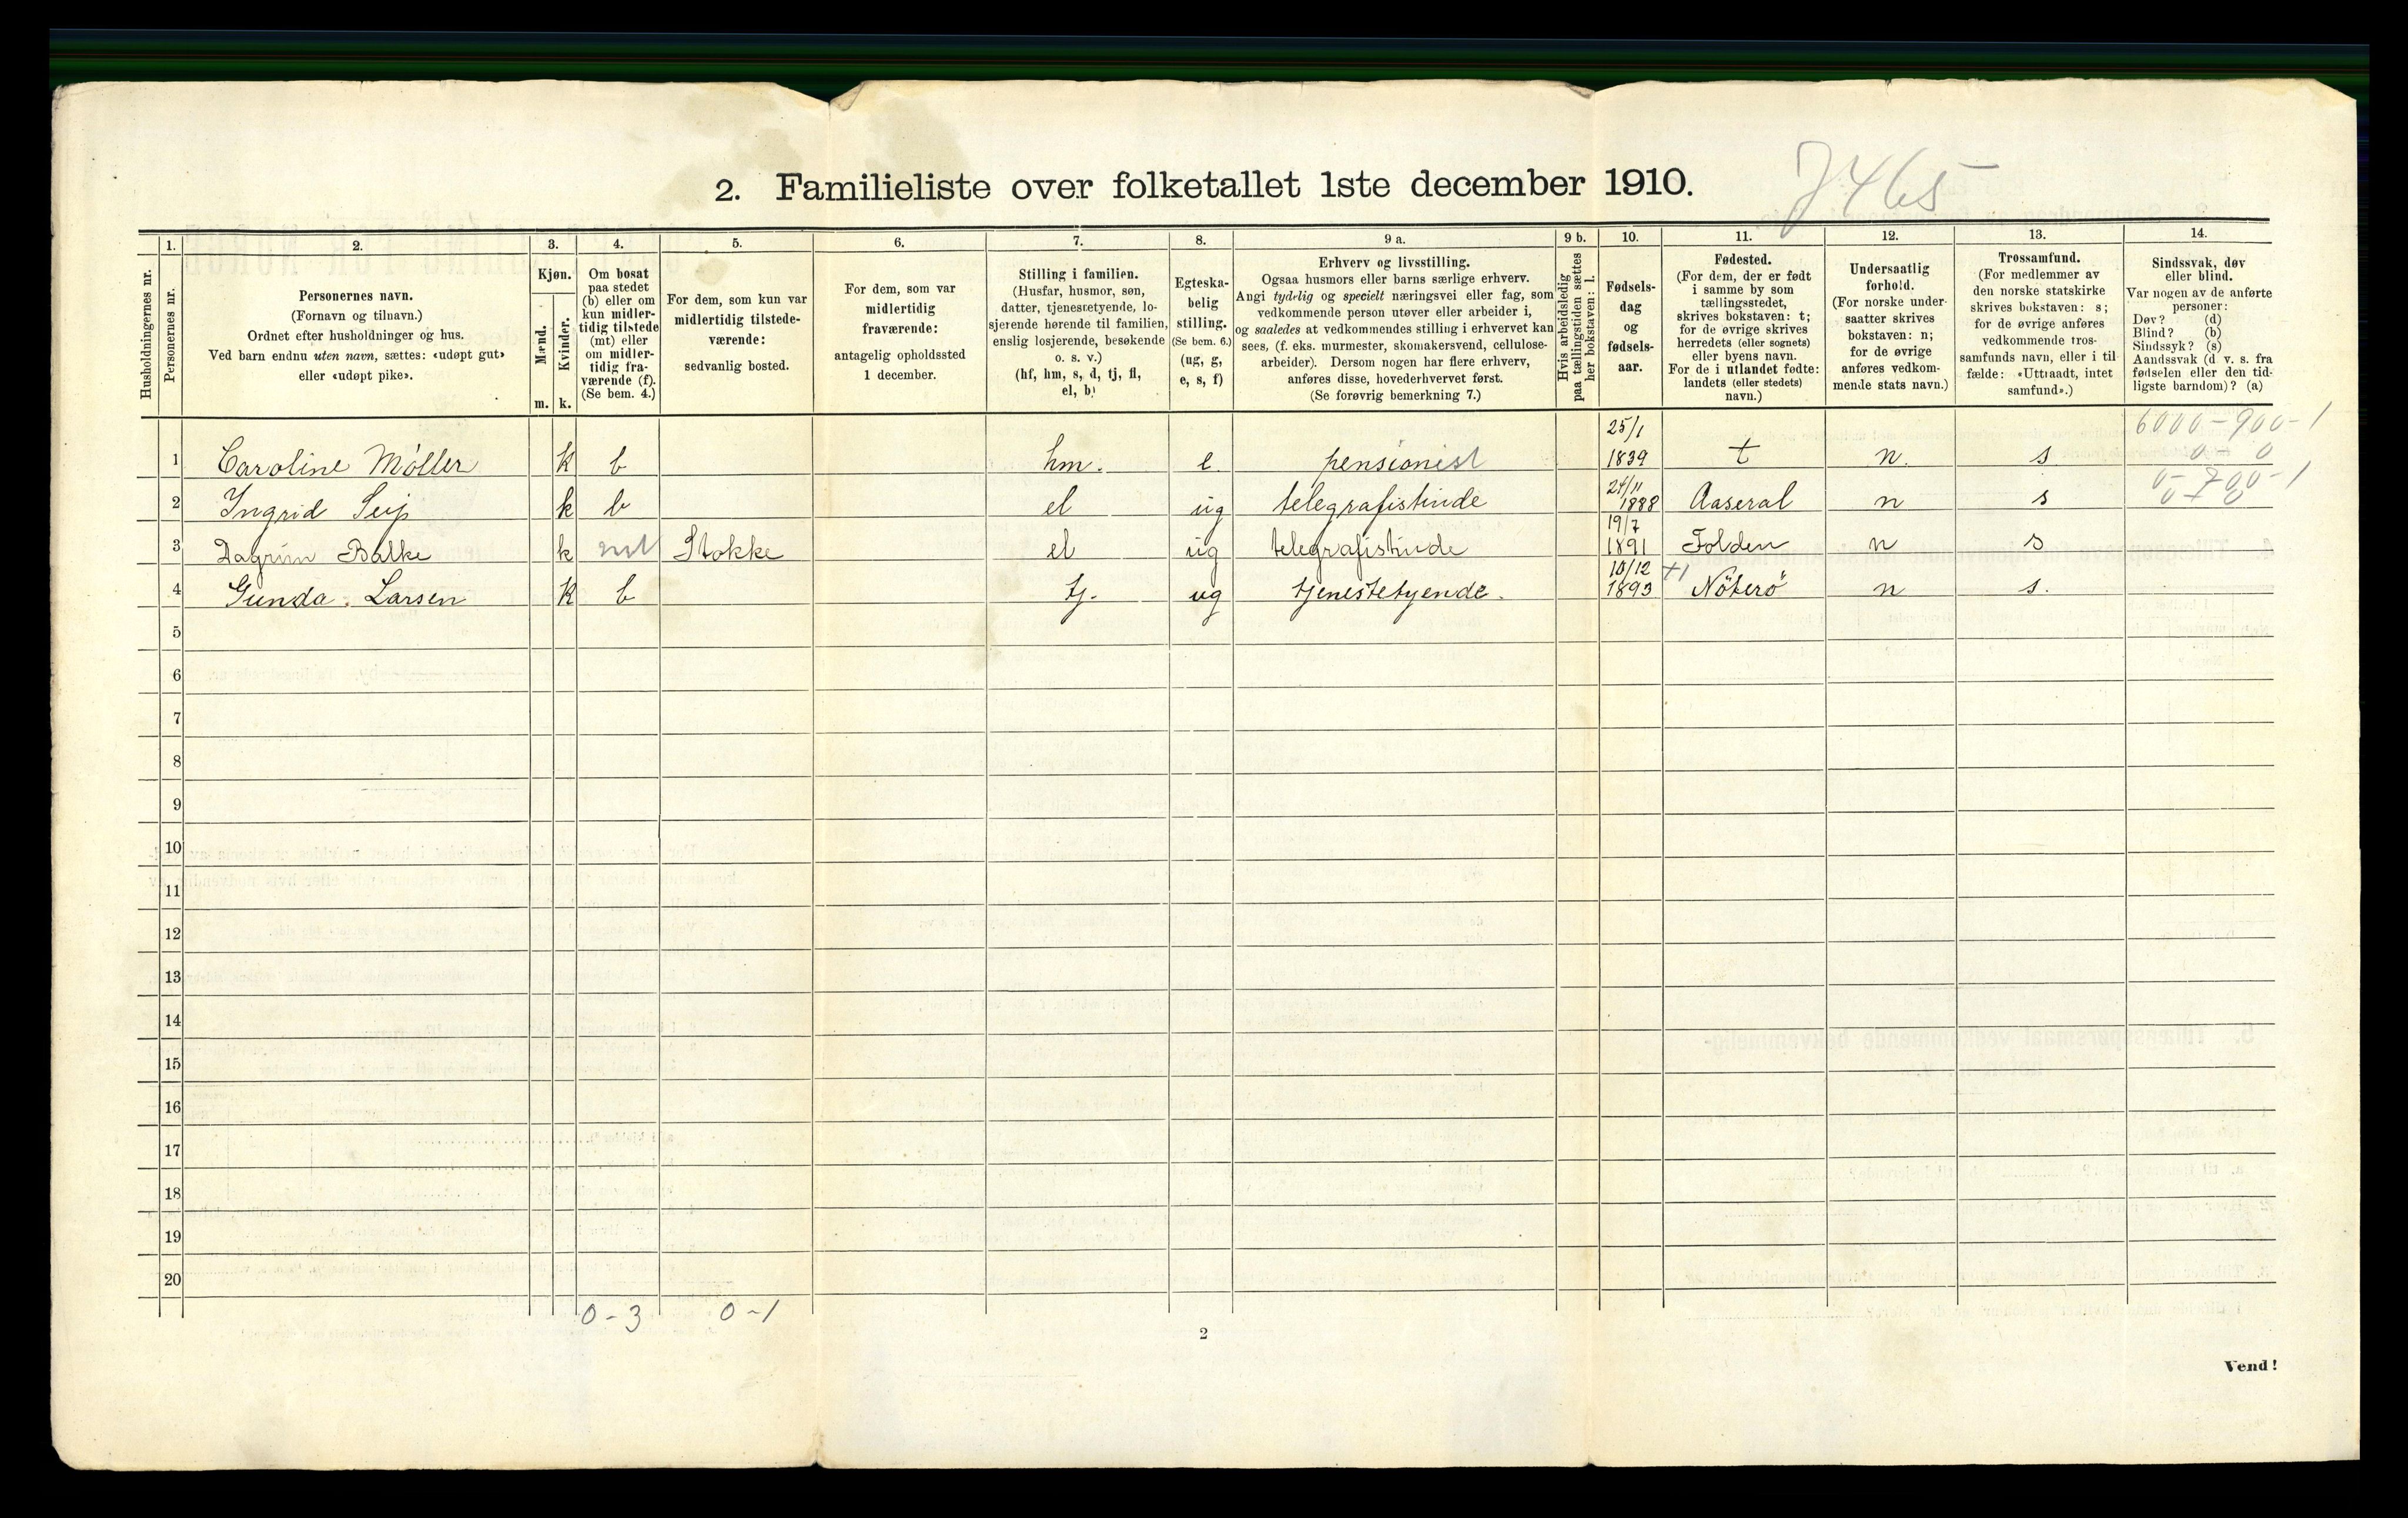 2. Familieliste over folketallet 1ste december 1910.
7465
Husholdningernes nr.
1.
Personernes nr.
2.
Personernes navn.
(Fornavn og tilnavn.)
Ordnet efter husholdninger og hus.
Ved barn endnu uten navn, sættes: «udøpt gut»
eller «udøpt pike».
3.
Kjøn.
Mænd.
Kvinder.
m.
k.
4.
Om bosat
paa stedet
(b) eller om
kun midler-
tidig tilstede
(mt) eller
om midler-
tidig fra-
værende (f).
(Se bem. 4.)
5.
For dem, som kun var
midlertidig tilstede-
værende:
sedvanlig bosted.
6.
For dem, som var
midlertidig
fraværende:
antagelig opholdssted
1 december.
7.
Stilling i familien.
(Husfar, husmor, søn,
datter, tjenestetyende, lo-
sjerende hørende til familien,
enslig losjerende, besøkende
o. s. v.)
(hf, hm, s, d, tj, fl,
el, b)
8.
Egteska-
belig
stilling.
(Se bem. 6.)
(ug, g,
e, s, f)
9 a.
Erhverv og livsstilling.
Ogsaa husmors eller barns særlige erhverv.
Angi tydelig og specielt næringsvei eller fag, som
vedkommende person utøver eller arbeider i,
og saaledes at vedkommendes stilling i erhvervet kan
sees, (f. eks. murmester, skomakersvend, cellulose-
arbeider). Dersom nogen har flere erhverv,
anføres disse, hovederhvervet først.
(Se forøvrig bemerkning 7.)
9 b.
Hvis arbeidsledig
paa tællingstiden sættes
her bokstaven: l.
10.
Fødsels-
dag
og
fødsels-
aar.
11.
Fødested.
(For dem, der er født
i samme by som
tællingsstedet,
skrives bokstaven: t;
for de øvrige skrives
herredets (eller sognets)
eller byens navn.
For de i utlandet fødte:
landets (eller stedets)
navn.)
12.
Undersaatlig
forhold.
(For norske under-
saatter skrives
bokstaven: n;
for de øvrige
anføres vedkom-
mende stats navn.)
13.
Trossamfund.
(For medlemmer av
den norske statskirke
skrives bokstaven: s;
for de øvrige anføres
vedkommende tros-
samfunds navn, eller i til-
fælde: «Uttraadt, intet
samfund».)
14.
Sindssvak, døv
eller blind.
Var nogen av de anførte
personer:
Døv? (d)
Blind? (b)
Sindssyk? (s)
Aandssvak (d. v. s. fra
fødselen eller den tid-
ligste barndom)? (a)
6000-900-1
0 0
1 Caroline Møller k b hm. e. pensionist 25/1 1839 t n. s
0-700-1
2 Ingrid Seip k b el ug telegrafistinde 1888 Aaseral n s
3 Dagrun Balke k mt Stokke el ug telegrafistinde 19/7 1891 Folden n s
4 Gunda Larsen k b tj. ug tjenestetyende. 10/12 1893 Nøterø n s.
5
6
7
8
9
10
11
12
13
14
15
16
17
18
19
20
0-3 0-1
2
Vend!